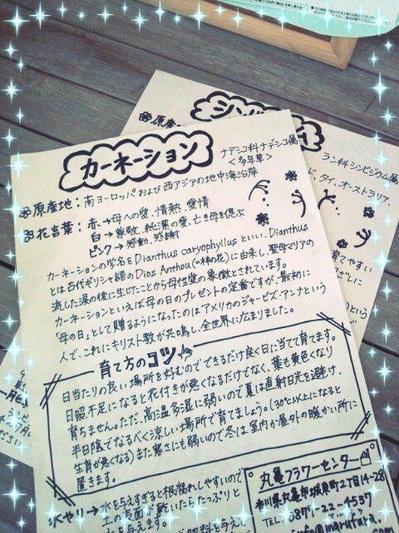 シンビ
原産
ラン科シンビジウム属
ド、タイ、オーストラリア、
カーネーション
ナデシコ科ナデシコ属
<多年草>
原産地：南ヨーロッパおよび西アジアの地中海沿岸
花言葉：赤→母への愛、情熱、愛情
白→尊敬、純潔の愛、亡き母を偲ぶ
ピンク→感動、感謝
カーネーションの学名を Dianthus caryophyllus といい、Dianthus
とは古代ギリシャ語の Dios Anthou(=神の花)に由来し、聖母マリアの
流した涙の後に生じたことから母性愛の象徴とされています。
カーネーションといえば母の日のプレゼントの定番ですが、最初に
「母の日」として贈るようになったのはアメリカのジャービズ・アンナという
人で、これにキリスト教が共鳴し、全世界に広まりました。
育て方のコツ
日当たりの良い場所を好むのでできるだけ良く日に当て育てます。
日照不足になると花付きが悪くなるだけでなく、葉も黄色くなり
育ちません。ただ、高温多湿に弱いので夏は直射日光を避け、
半日陰でなるべく涼しい場所で育てましょう。(30℃以上になると
生育が悪くなる)また寒さにも弱いので冬は室内か屋外の暖かい所に
置きます。
水やり→水を与えすぎると根腐れしやすいので
土の表面が乾いたらたっぷりと
水を与えます。
丸亀フラワーセンター
香川県丸亀市城東町2丁目14-28
TEL 0877-22-4537